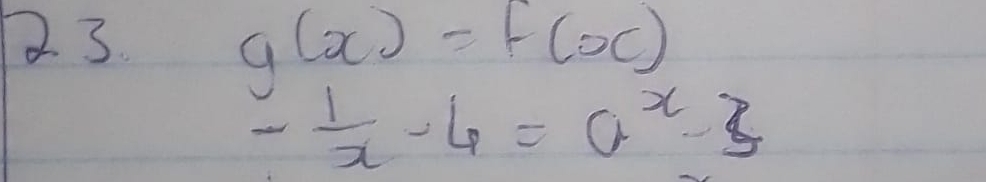 23. g(x) = f(x)
- 1/x - 4 = a^x - 3